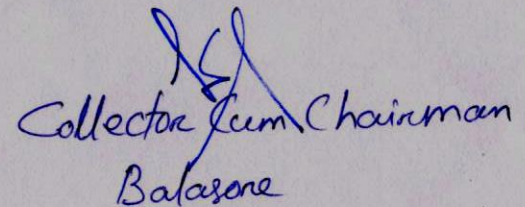 Collector Cum Chairman
Balasore